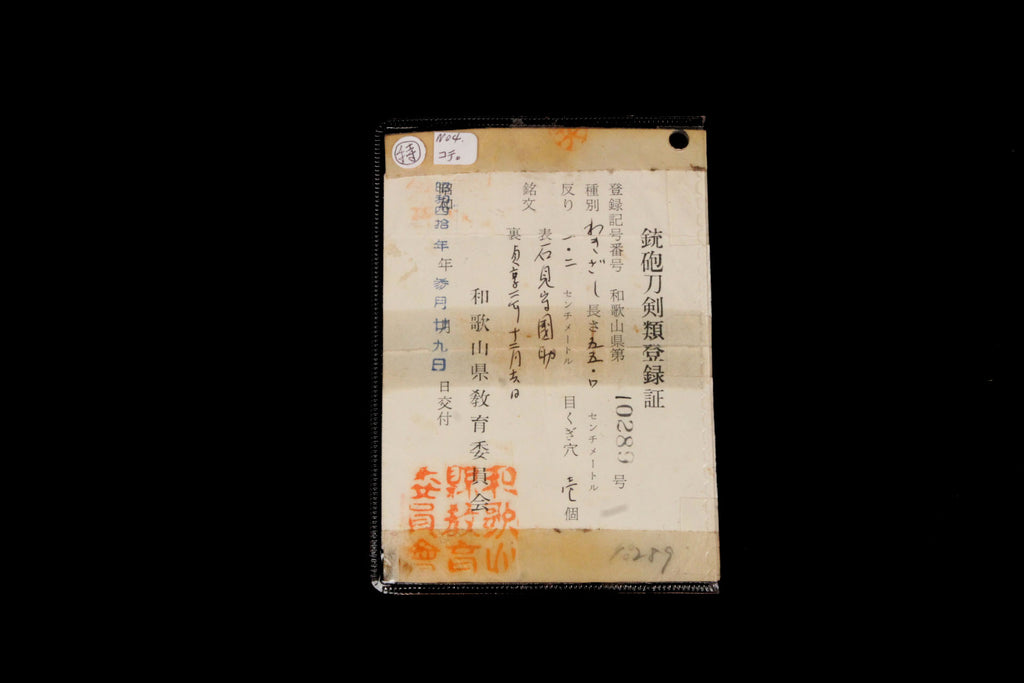 特
No4.
コテ。
銃砲刀剣類登録証
登録記号番号 和歌山県第 10289 号
種別 わきざし 長さ 五五・〇 センチメートル
反り 一・二 センチメートル 目くぎ穴 壱 個
銘文 表 石見守國助
裏 貞享二年十二月吉日
和歌山県教育委員会
昭和四拾年年参月廿九日日交付
和歌山
縣教育
委員會
10289